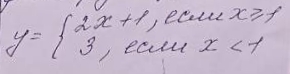 y = { 2x + 1, если x ≥ 1
3, если x < 1